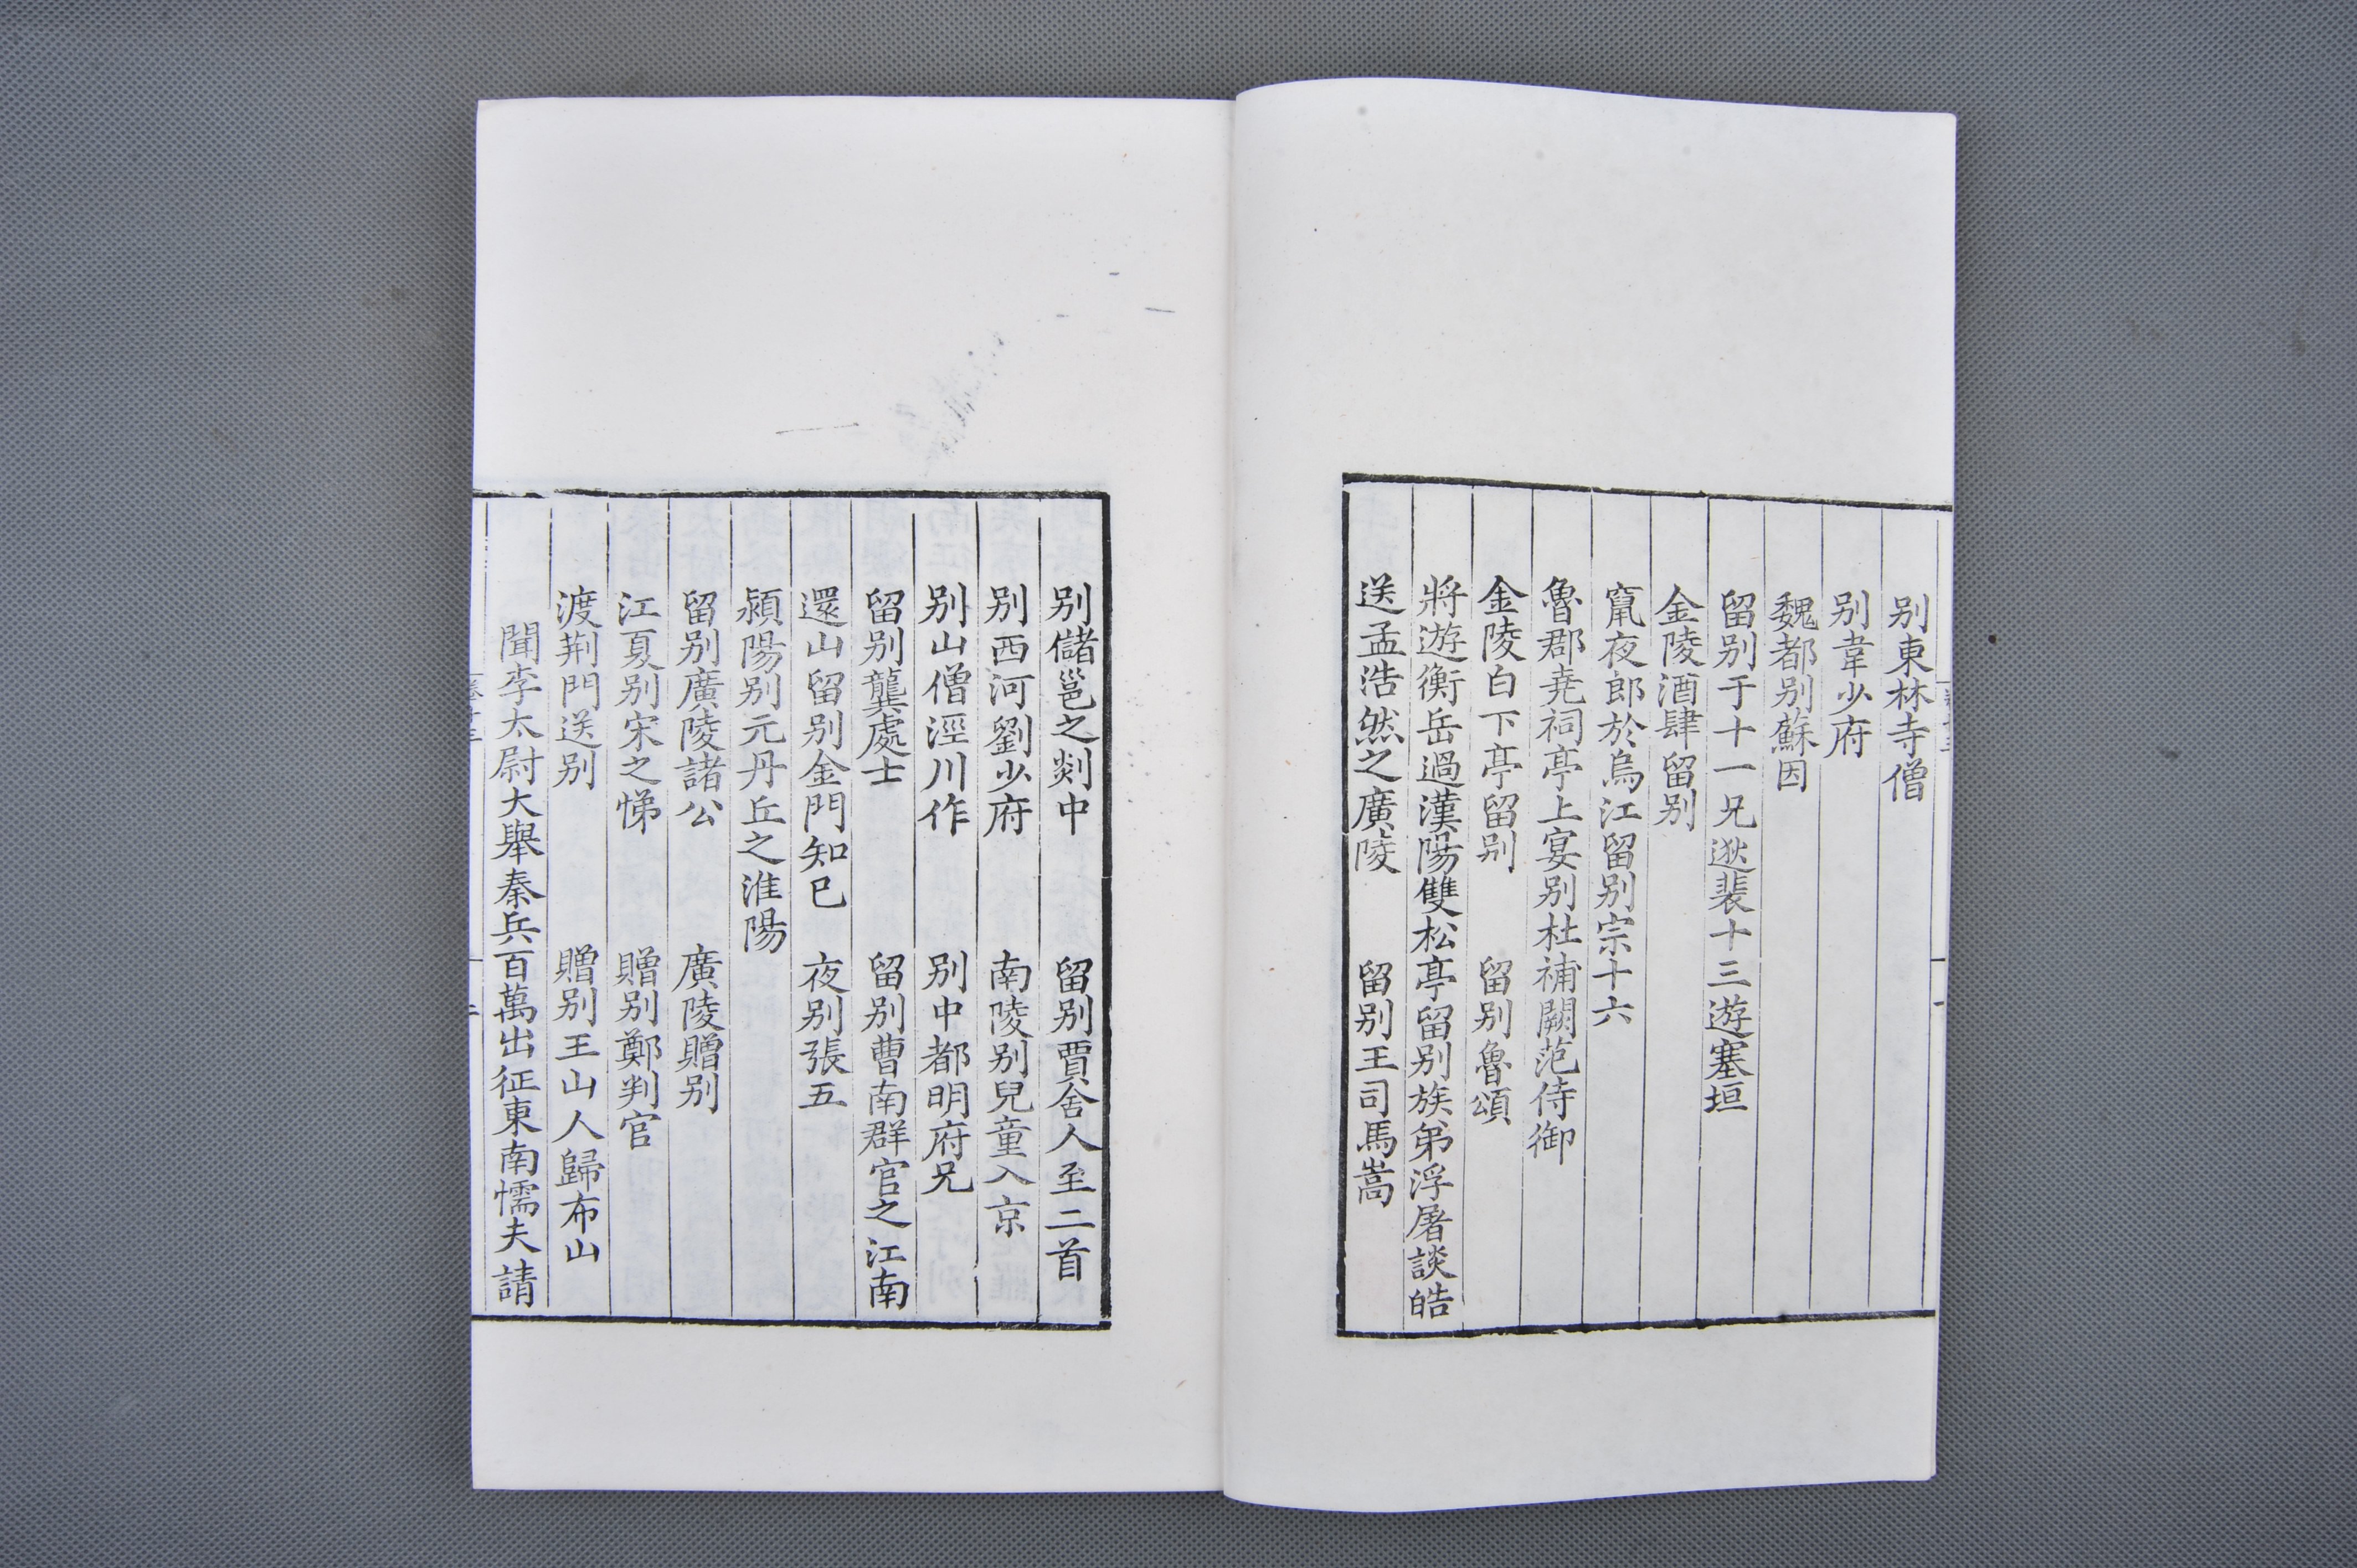 别東林寺僧
别韋少府
魏都别蘇因
留别于十一兄逖裴十三遊塞垣
金陵酒肆留别
竄夜郎於烏江留别宗十六
魯郡堯祠亭上宴别杜補闕范侍御
金陵白下亭留别　留别魯頌
將遊衡岳過漢陽雙松亭留别族弟浮屠談皓
送孟浩然之廣陵　留别王司馬嵩
别儲邕之剡中　留别賈舍人至二首
别西河劉少府　南陵别兒童入京
别山僧涇川作　别中都明府兄
留别龔處士　留别曹南群官之江南
還山留别金門知已　夜别張五
潁陽别元丹丘之淮陽
留别廣陵諸公　廣陵贈别
江夏别宋之悌　贈别鄭判官
渡荆門送别　贈别王山人歸布山
聞李太尉大舉秦兵百萬出征東南懦夫請